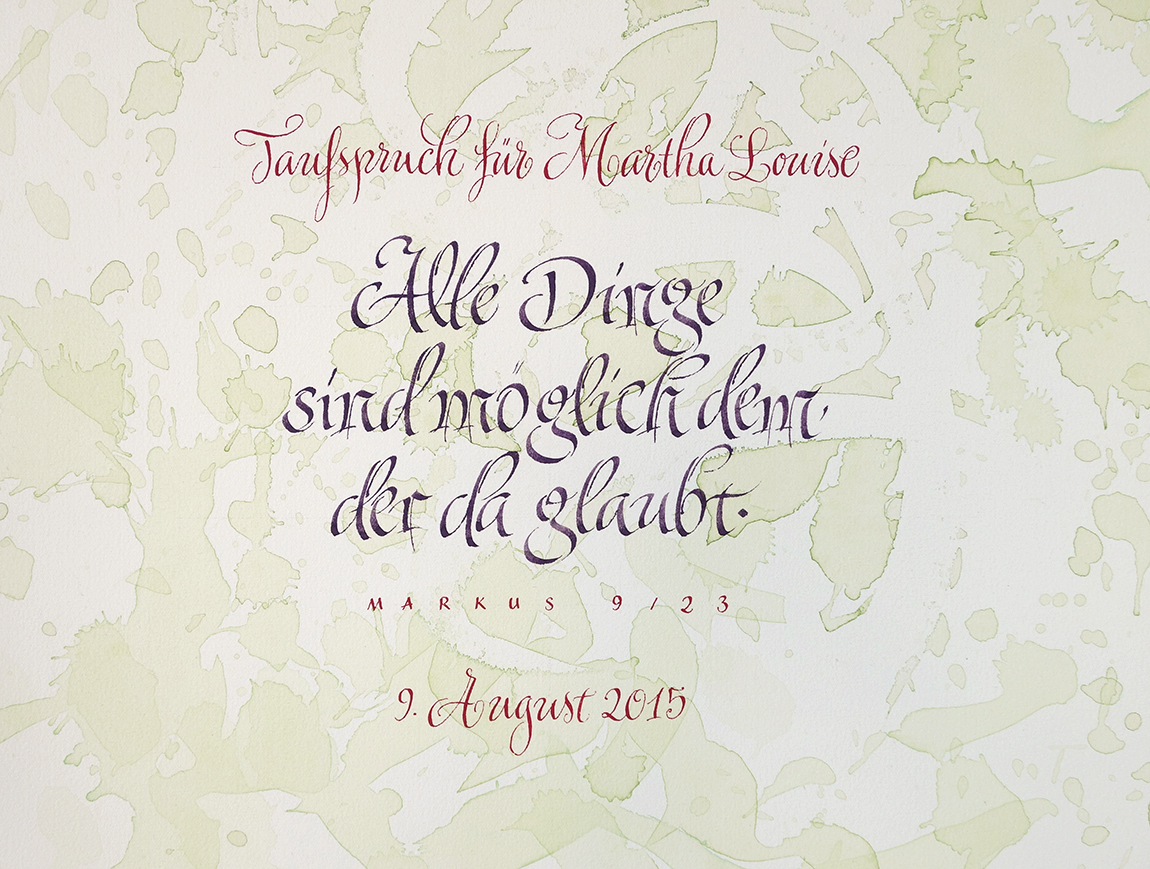 Taufspruch für Martha Louise
Alle Dinge
sind möglich dem,
der da glaubt.
MARKUS 9/23
9. August 2015